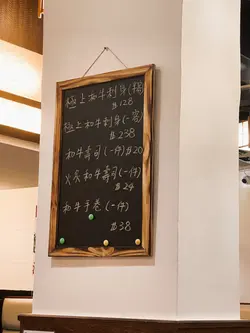 極上和牛刺身(精)
$128
極上和牛刺身(一客)
$238
和牛壽司(一件)$20
火炙和牛壽司(一件)
$24
和牛手卷(一件)
$38